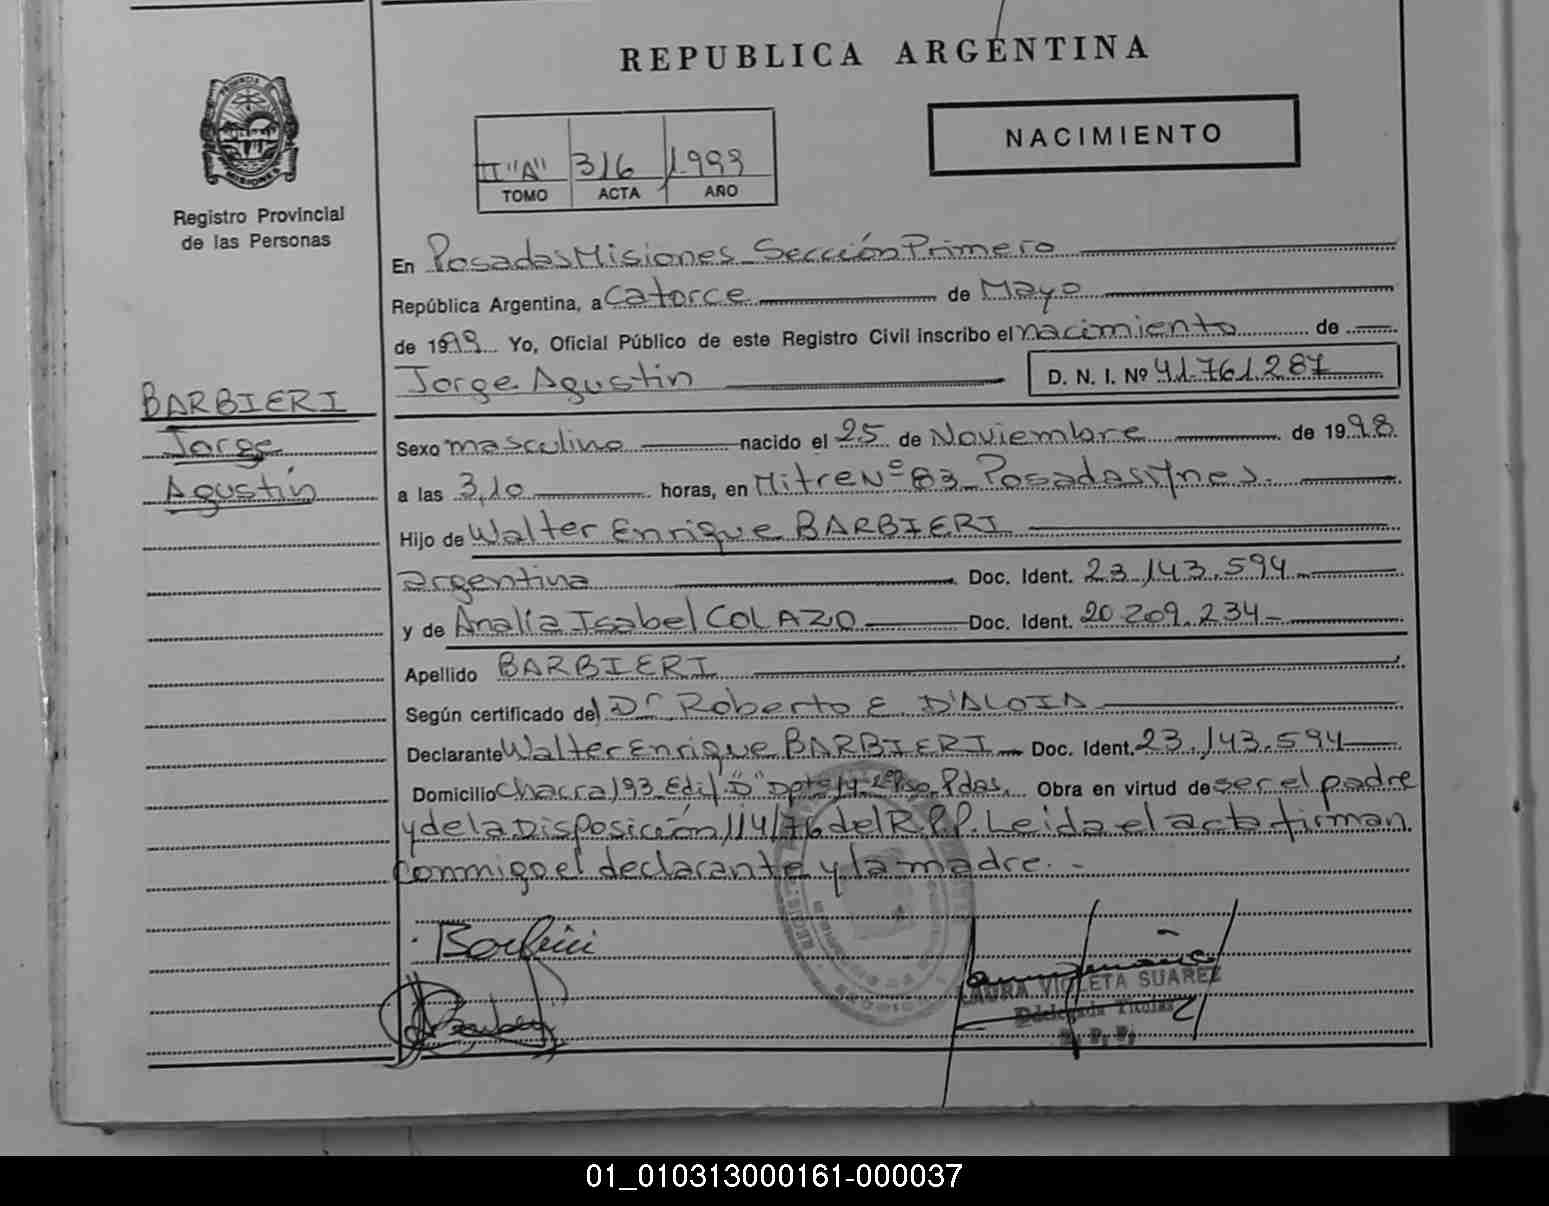 REPUBLICA ARGENTINA
PROVINCIA
MISIONES
Registro Provincial
de las Personas
II "A" 316 1999
TOMO ACTA AÑO
NACIMIENTO
En Posadas Misiones Sección Primero
República Argentina, a Catorce de Mayo
de 1999 Yo, Oficial Público de este Registro Civil inscribo el nacimiento de
Jorge Agustin D. N. I. Nº 41.761.287
BARBIERI
Jorge
Agustín
Sexo masculino nacido el 25 de Noviembre de 1998
a las 3,10 horas, en Mitre Nº 83 Posadas Mnes.
Hijo de Walter Enrique BARBIERI
argentina Doc. Ident. 23.143.594
y de Analía Isabel COLAZO Doc. Ident. 20.209.234
Apellido BARBIERI
Según certificado del Dr Roberto E. D'ALOIA
Declarante Walter Enrique BARBIERI Doc. Ident. 23.143.594
Domicilio Chacra 193 Edif "D" Pdas. Obra en virtud de ser el padre
y de la Disposición 114/76 del R.P.P. Leida el acta firman
conmigo el declarante y la madre. -
LAURA VIOLETA SUAREZ
Delegada Titular
R. P. P.
01_010313000161-000037